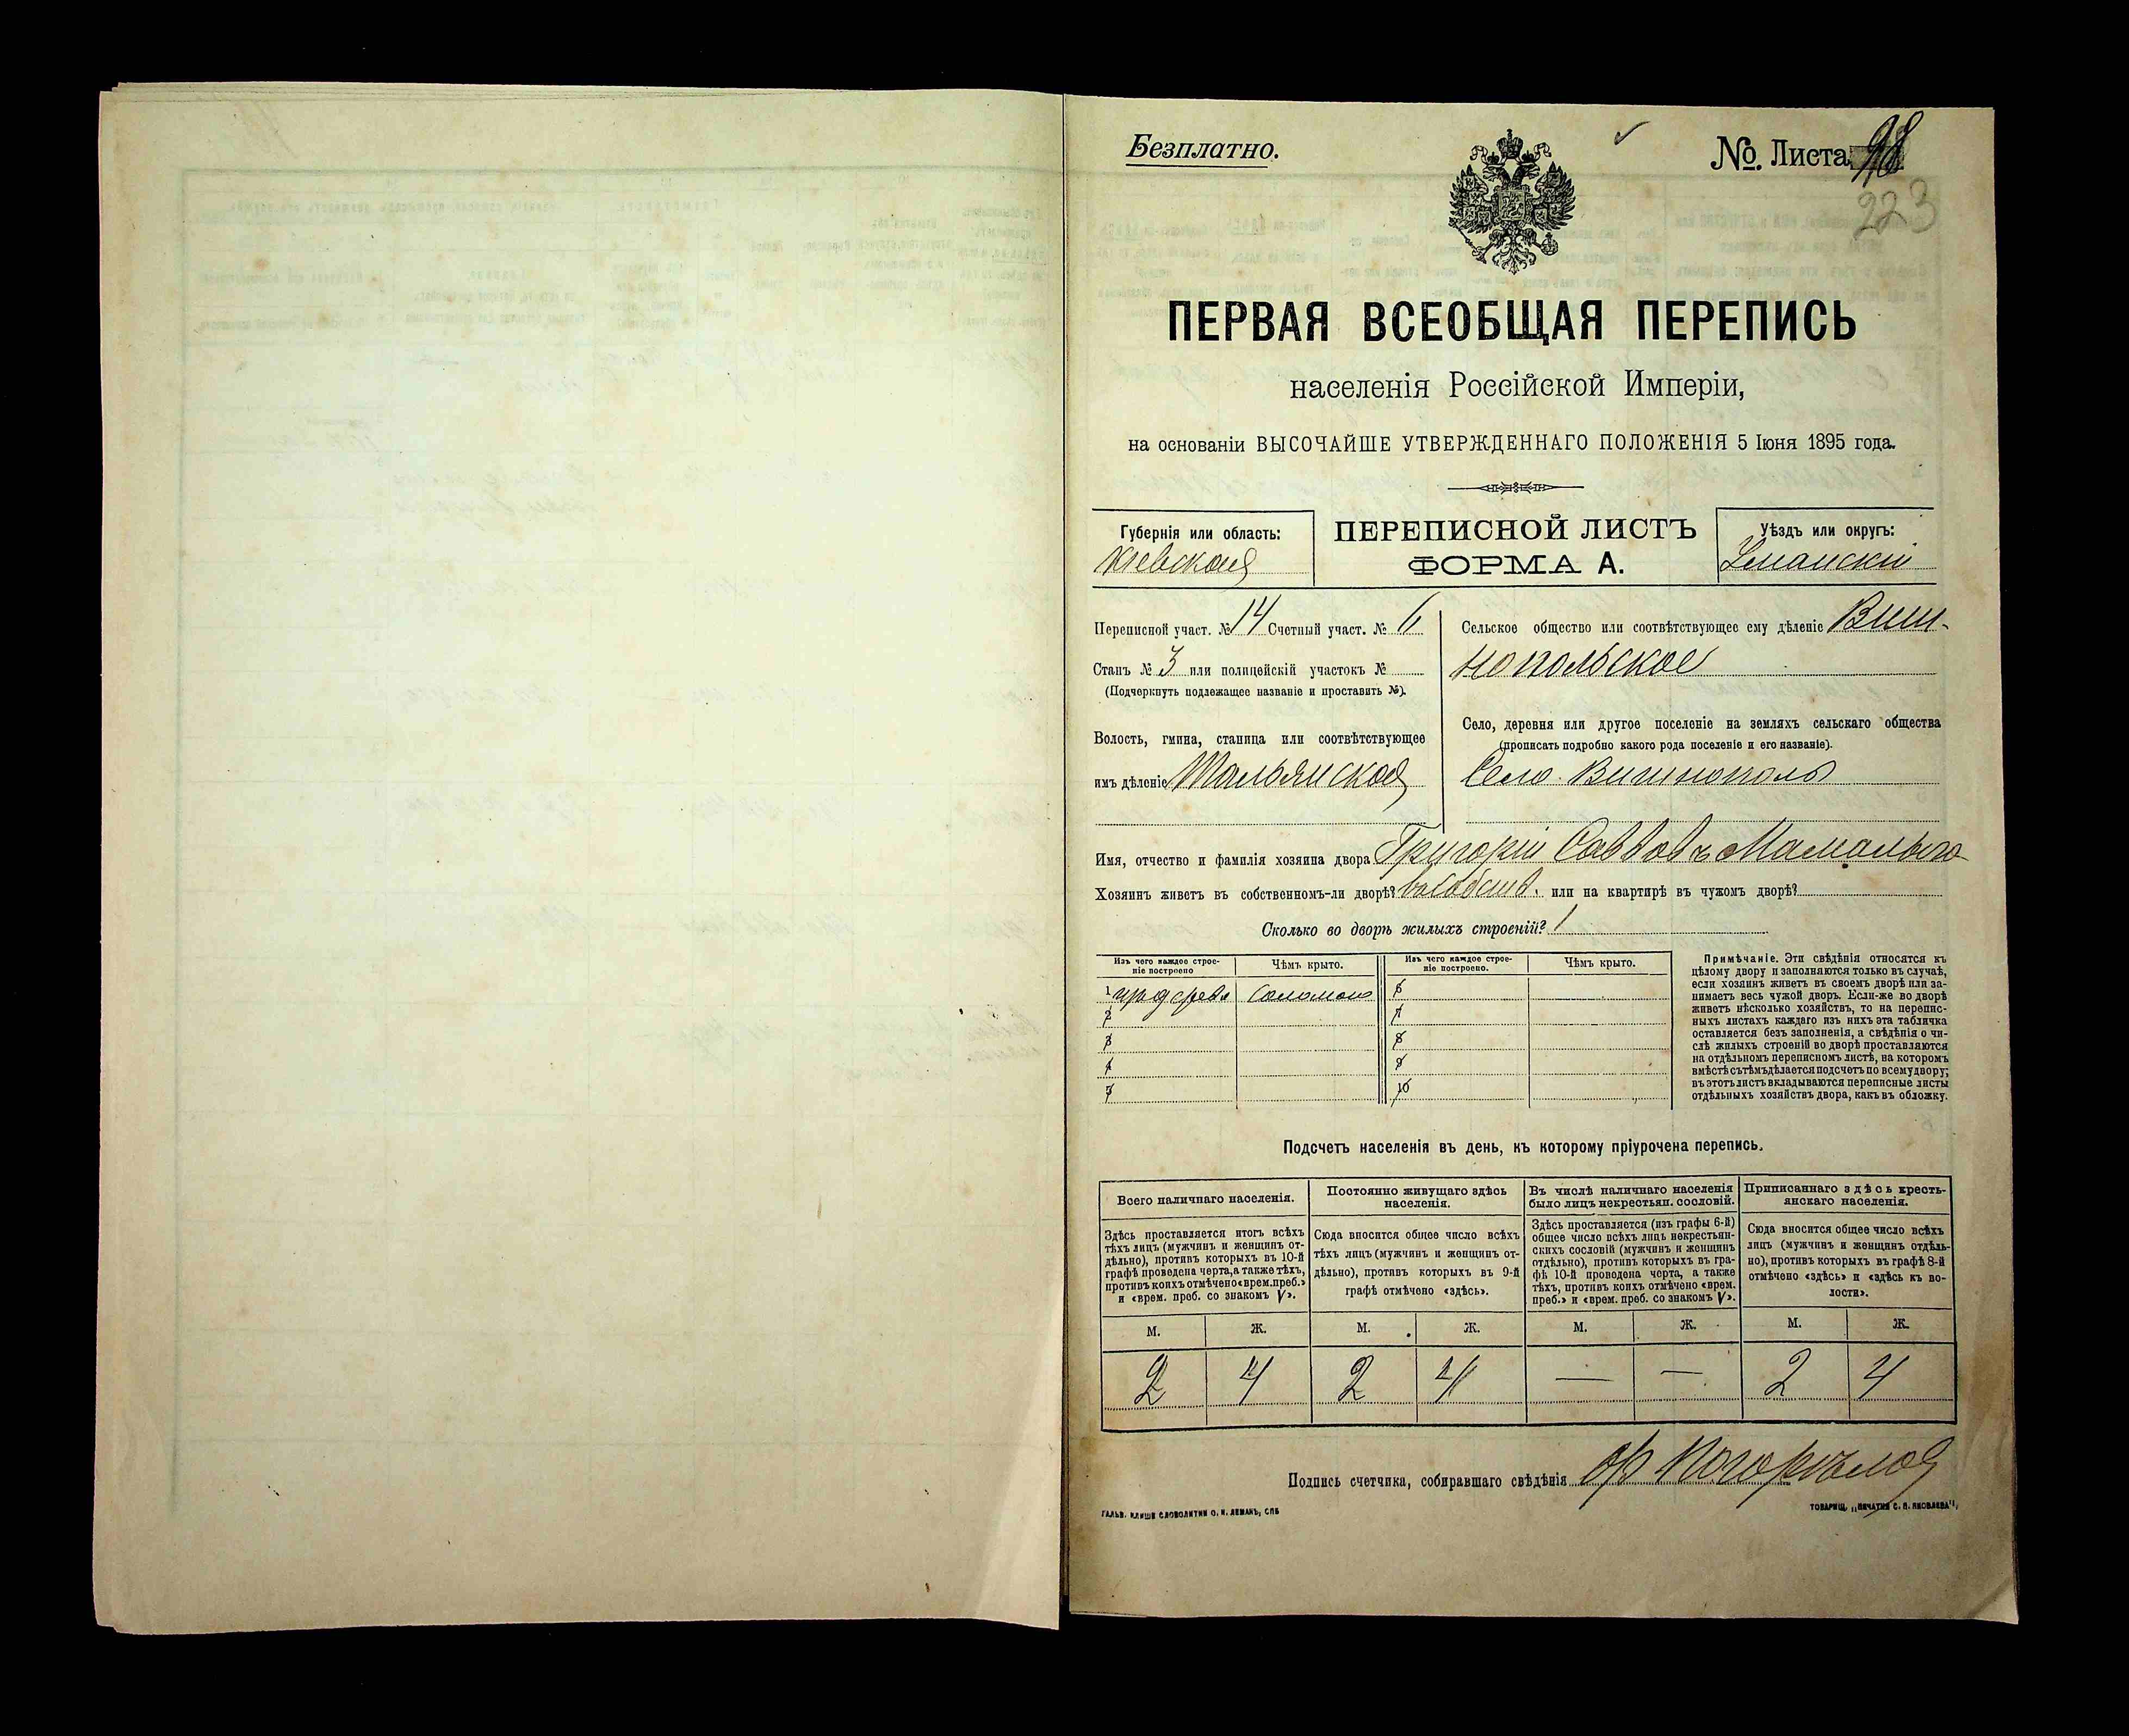 Безплатно.
№ Листа 98
223
ПЕРВАЯ ВСЕОБЩАЯ ПЕРЕПИСЬ
населенія Россійской Имперіи,
на основаніи ВЫСОЧАЙШЕ УТВЕРЖДЕННАГО ПОЛОЖЕНІЯ 5 Іюня 1895 года.
Губернія или область:
Кіевская
ПЕРЕПИСНОЙ ЛИСТЪ
ФОРМА А.
Уѣздъ или округъ:
Уманскій
Переписной участ. № 14 Счетный участ. № 6
Станъ № 3 или полицейскій участокъ №
(Подчеркнуть подлежащее названіе и проставить №).
Волость, гмина, станица или соотвѣтствующее
имъ дѣленіе Тальянская
Сельское общество или соотвѣтствующее ему дѣленіе Виш-
нопольское
Село, деревня или другое поселеніе на земляхъ сельскаго общества
(прописать подробно какого рода поселеніе и его названіе).
Село Вишнополь
Имя, отчество и фамилія хозяина двора Григорій Саввовъ Мамалыга
Хозяинъ живетъ въ собственномъ-ли дворѣ? въ собств. или на квартирѣ въ чужомъ дворѣ?
Сколько во дворѣ жилыхъ строеній? 1
Изъ чего каждое строе-
ніе построено
Чѣмъ крыто.
Изъ чего каждое строе-
ніе построено.
Чѣмъ крыто.
1 изъ дерева соломою 6
2 7
3 8
4 9
5 10
Примѣчаніе. Эти свѣдѣнія относятся къ
цѣлому двору и заполняются только въ случаѣ,
если хозяинъ живетъ въ своемъ дворѣ или за-
нимаетъ весь чужой дворъ. Если-же во дворѣ
живетъ нѣсколько хозяйствъ, то на перепис-
ныхъ листахъ каждаго изъ нихъ эта табличка
оставляется безъ заполненія, а свѣдѣнія о чи-
слѣ жилыхъ строеній во дворѣ проставляются
на отдѣльномъ переписномъ листѣ, на которомъ
вмѣстѣ съ тѣмъ дѣлается подсчетъ по всему двору;
въ этотъ листъ вкладываются переписные листы
отдѣльныхъ хозяйствъ двора, какъ въ обложку.
Подсчетъ населенія въ день, къ которому пріурочена перепись.
Всего наличнаго населенія.
Здѣсь проставляется итогъ всѣхъ
тѣхъ лицъ (мужчинъ и женщинъ от-
дѣльно), противъ которыхъ въ 10-й
графѣ проведена черта, а также тѣхъ,
противъ коихъ отмѣчено «врем. преб.»
и «врем. преб. со знакомъ V».
Постоянно живущаго здѣсь
населенія.
Сюда вносится общее число всѣхъ
тѣхъ лицъ (мужчинъ и женщинъ от-
дѣльно), противъ которыхъ въ 9-й
графѣ отмѣчено «здѣсь».
Въ числѣ наличнаго населенія
было лицъ некрестьян. сословій.
Здѣсь проставляется (изъ графы 6-й)
общее число всѣхъ лицъ некрестьян-
скихъ сословій (мужчинъ и женщинъ
отдѣльно), противъ которыхъ въ гра-
фѣ 10-й проводена черта, а также
тѣхъ, противъ коихъ отмѣчено «врем.
преб.» и «врем. преб. со знакомъ V».
Приписаннаго здѣсь кресть-
янскаго населенія.
Сюда вносится общее число всѣхъ
лицъ (мужчинъ и женщинъ отдѣль-
но), противъ которыхъ въ графѣ 8-й
отмѣчено «здѣсь» и «здѣсь къ во-
лости».
М. Ж. М. Ж. М. Ж. М. Ж.
2 4 2 4 — — 2 4
Подпись счетчика, собиравшаго свѣдѣнія
ГАЛЬВ. КЛИШЕ СЛОВОЛИТНИ О. И. ЛЕМАНЪ, СПБ
ТОВАРИЩ. „ПЕЧАТНЯ С. П. ЯКОВЛЕВА",